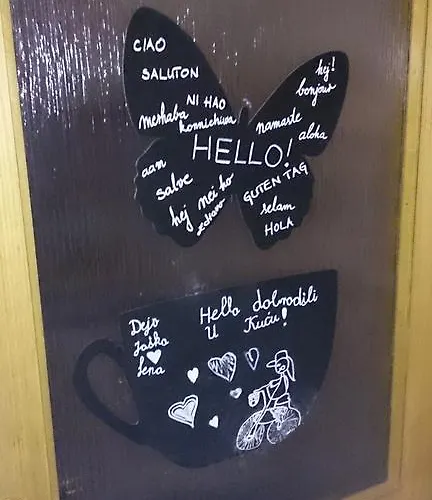 CIAO
SALUTON
NI HAO
merhaba
konnichiwa
hej!
bonjour
namaste
aloha
HELLO!
aan
salve
hej
nei ho
zdravo
GUTEN TAG
selam
HOLA
Hello dobrodili
U Kuću!
Dejo
Jaška
Lena